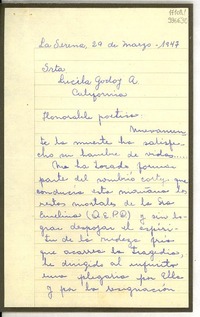 La Serena, 29 de marzo - 1947
Srta
Lucila Godoy A
California
Honorable poetisa:
Nuevamen
te la muerte ha satisfe
cho su hambre de vidas....
Me ha tocado formar
parte del sombrío cortejo que
conducía esta mañana los
restos mortales de la Sra
Emelina (Q.E.P.D) y sin lo
grar despojar el espíri
tu de la modeza fría
que acarrea la tragedia,
he dirigido al infinito
una plegaria por Ella
y por la resignación